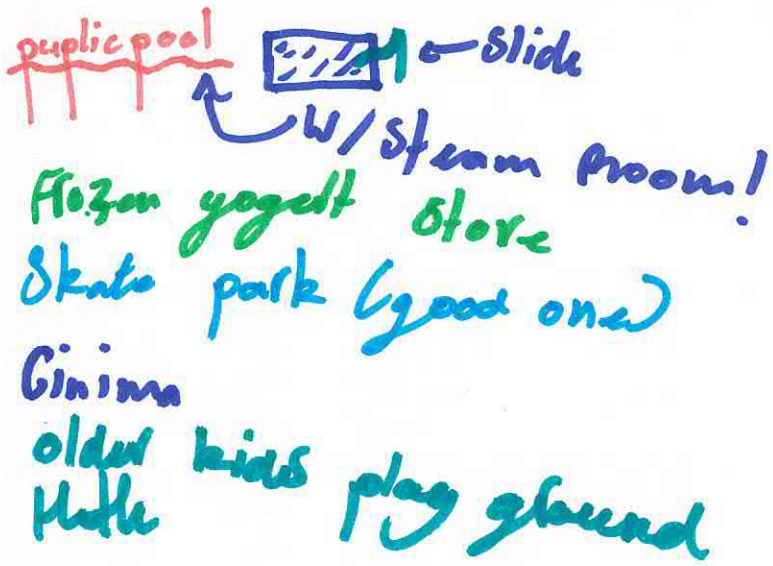 puplic pool
slide
w/ steam proom!
Frozen yogert store
Skate park (good one)
Cinima
older kids play ground